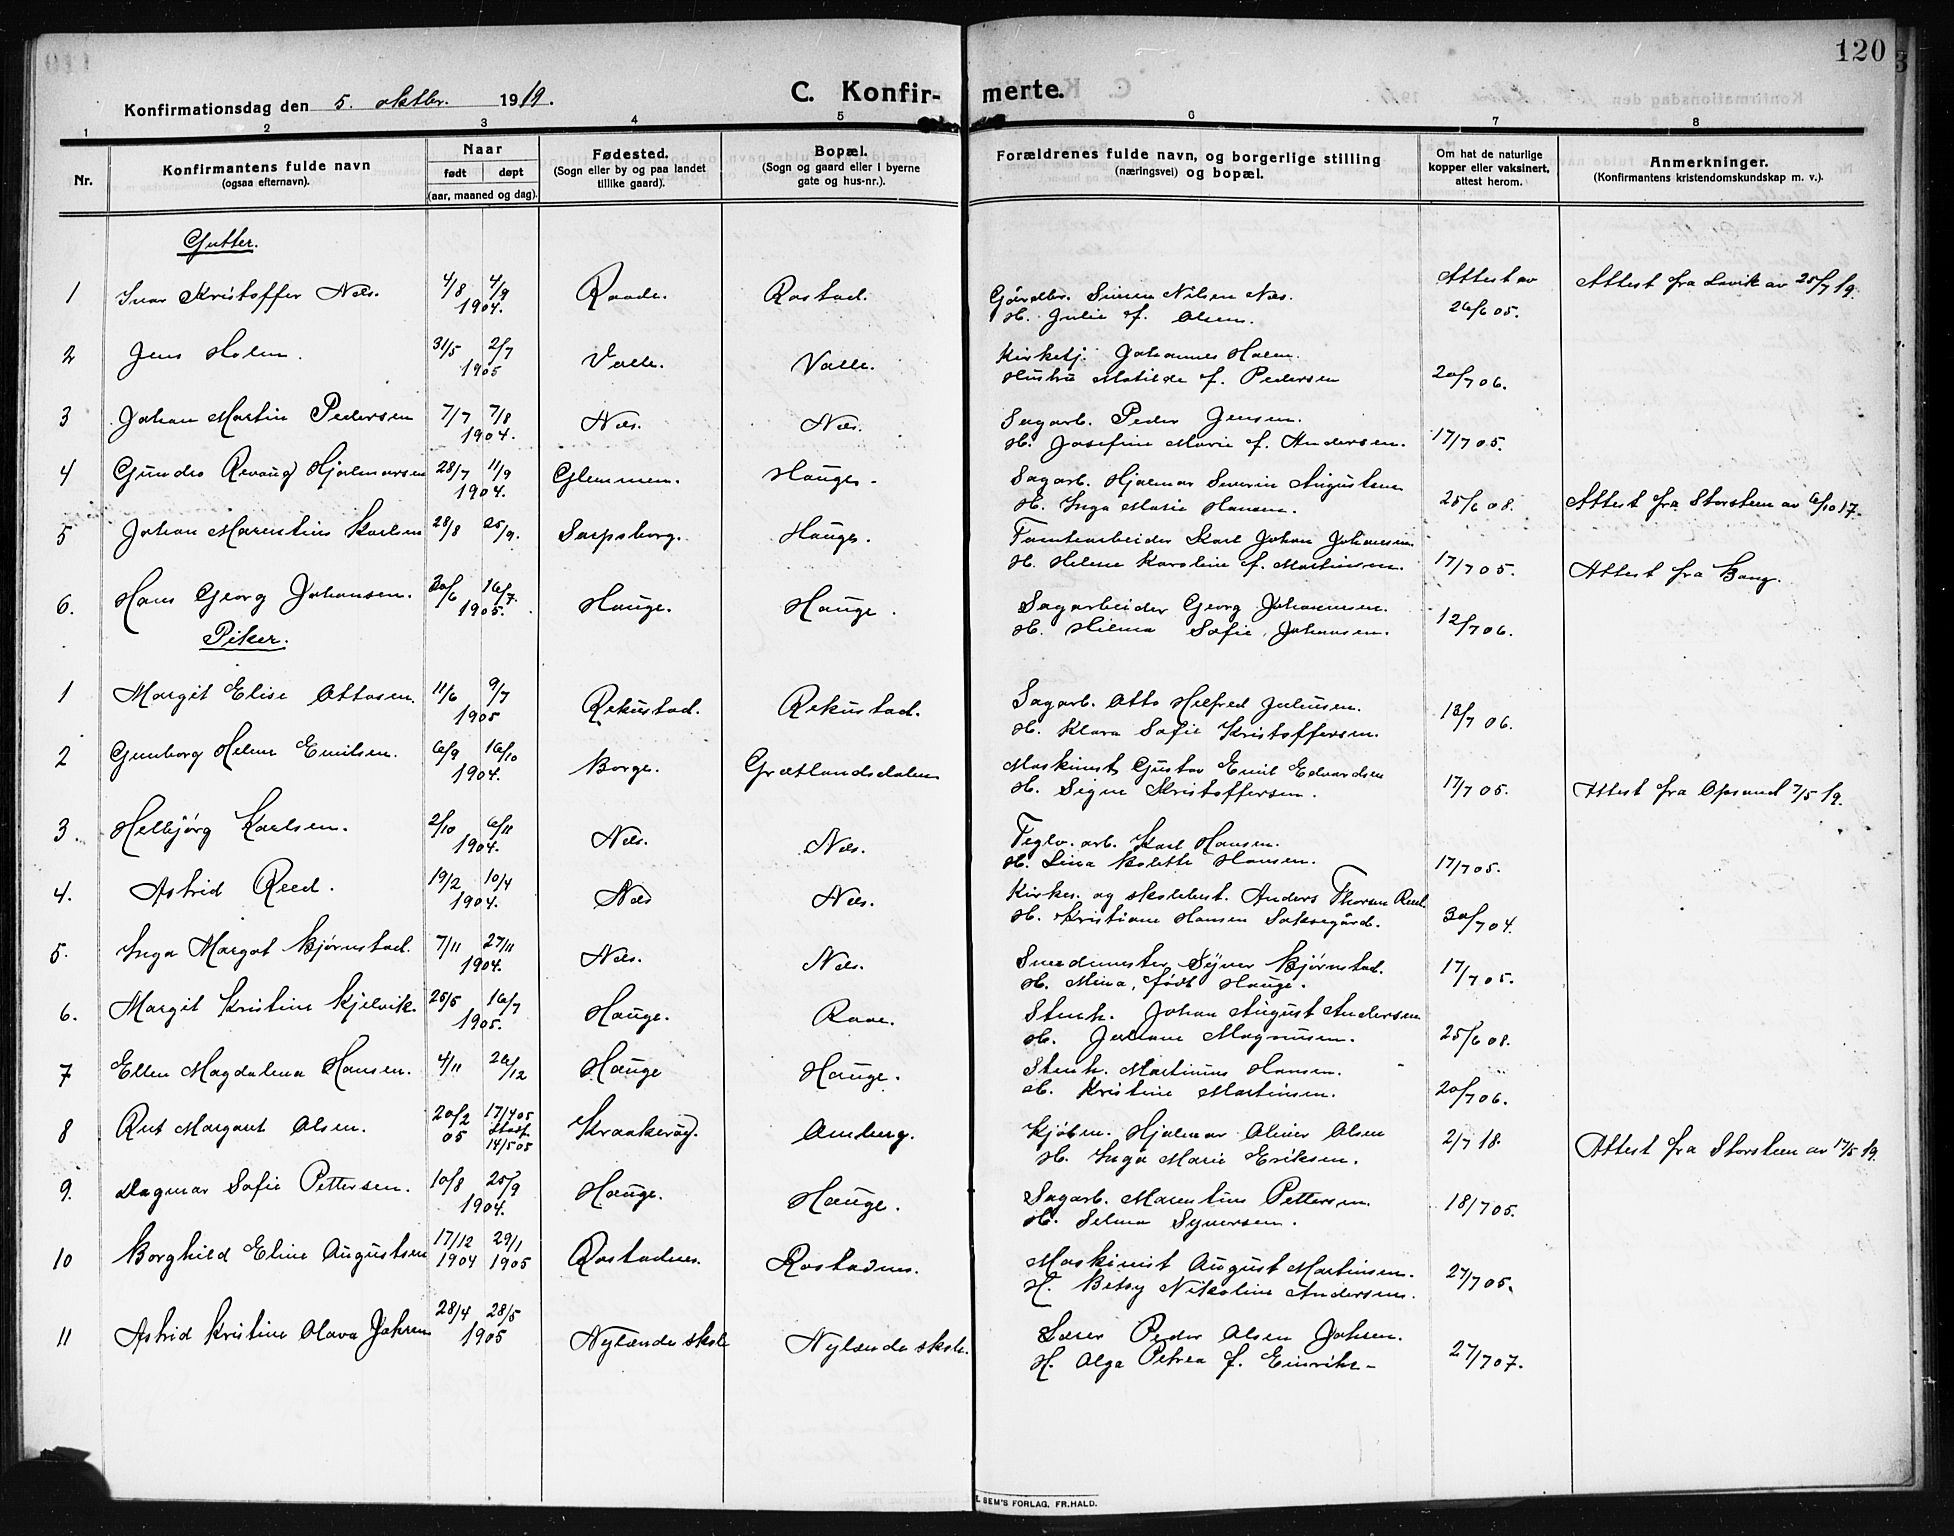 120
Konfirmationsdag den 5. oktbr. 1919.
C. Konfir- merte.
1 2 3 4 5 6 7 8
Nr.
Konfirmantens fulde navn
(ogsaa efternavn).
Naar
født døpt
(aar, maaned og dag).
Fødested.
(Sogn eller by og paa landet
tillike gaard).
Bopæl.
(Sogn og gaard eller i byerne
gate og hus-nr.).
Forældrenes fulde navn, og borgerlige stilling
(næringsvei) og bopæl.
Om hat de naturlige
kopper eller vaksinert,
attest herom.
Anmerkninger.
(Konfirmantens kristendomskundskap m. v.).
Gutter.
1 Ivar Kristoffer Næs. 4/8 4/9 1904. Raade. Rostad. Gårdbr. Simen Nilsen Næs. Attest av Attest fra av 25/7 19.
H. Julie f. Olsen. 26/6 05.
2 Jens Holm. 31/5 2/7 1905 Valle. Valle. Kirketj. Johannes Holm.
Hustru Matilde f. Pedersen 20/7 06.
3 Johan Martin Pedersen 7/7 7/8 1904. Næs. Næs. Sagarb. Peder Jensen.
H. Josefine Marie f. Andersen. 17/7 05.
4 Hjalmarsen 28/7 11/9 1904. Glemmen. Hauge. Sagarb. Hjalmar Severin Augustsen
H. Inga Marie Hansen. 25/6 08. Attest fra Storsteen av 6/10 17.
5 Johan Marentius Karlsen 28/8 25/9. Sarpsborg. Hauge. Tomtearbeider Karl Johan Johansen.
H. Helene Karoline f. Martinsen. 17/7 05. Attest fra Berg.
6. Hans Georg Johansen. 30/6 16/7 1905. Hauge. Hauge. Sagarbeider Georg Johannesen.
H. Hilma Sofie Johansen. 12/7 06.
Piker.
1 Margit Elise Ottosen. 11/6 9/7 1905 Rekustad. Rekustad. Sagarb. Otto Helfred Juliusen.
H. Klara Sofie Kristoffersen. 18/7 06.
2 Gunborg Helene Emilsen. 6/9 16/10 1904. Borge. Grætlandsdalen Maskinist Gustav Emil Edvardsen
H. Signe Kristoffersen. 17/7 05. Attest fra Opsund 7/5 19.
3. Helbjørg Karlsen. 2/10 6/11 1904. Næs. Næs. Teglv. arb. Karl Hansen.
H. Lina Kolette Hansen. 17/7 05.
4. Astrid Reed. 19/2 10/4 1904. Næs Næs. Kirkes. og skolebest. Anders Thorsen Reed.
H. Kristiane Hansen Saksegård. 30/7 04.
5. Inga Margot Bjørnstad. 7/11 27/11 1904. Næs. Næs. Smedmester Syver Bjørnstad.
H. Mina, født Hauge. 17/7 05.
6. Margit Kristine Kjelvik. 25/5 16/7 1905. Hauge. Raae. Stenh. Johan August Andersen
H. Juliane Magnussen. 25/6 08.
7 Ellen Magdalena Hansen. 4/11 26/12 Hauge Hauge. Stenh. Martinius Hansen.
H. Kristine Martinsen. 20/7 06.
8 Rut Margaret Olsen. 20/2 05 17/4 05 stadf. 14/5 05 Kraakerøy. Amberg. Kjøbm. Hjalmar Oliver Olsen
H. Inga Marie Eriksen. 2/7 18. Attest fra Storsteen av 17/5 19.
9. Dagmar Sofie Pettersen. 10/8 25/9 1904. Hauge. Hauge. Sagarb. Marentius Pettersen.
H. Selma Syversen. 18/7 05.
10 Borghild Eline Augustsen 17/12 1904 29/1 1905 Rostadnes. Rostadnes. Maskinist August Martinsen.
H. Betsy Nikoline Andersen. 27/7 05.
11 Astrid Kristine Olava Johsen 28/4 28/5 1905 Nylænde skole Nylænde skole. Lærer Peder Olsen Johsen.
H. Olga Petrea f. Einriks- 27/7 07.
E. SEM'S FORLAG, FR.HALD.